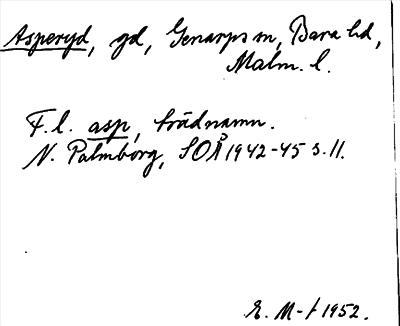 Asperyd, gd, Genarps sn, Bara hd,
Malm. l.
F. l. asp, trädnamn.
N. Palmborg, SOÅ 1942-45 s. 11.
E. M-t 1952.